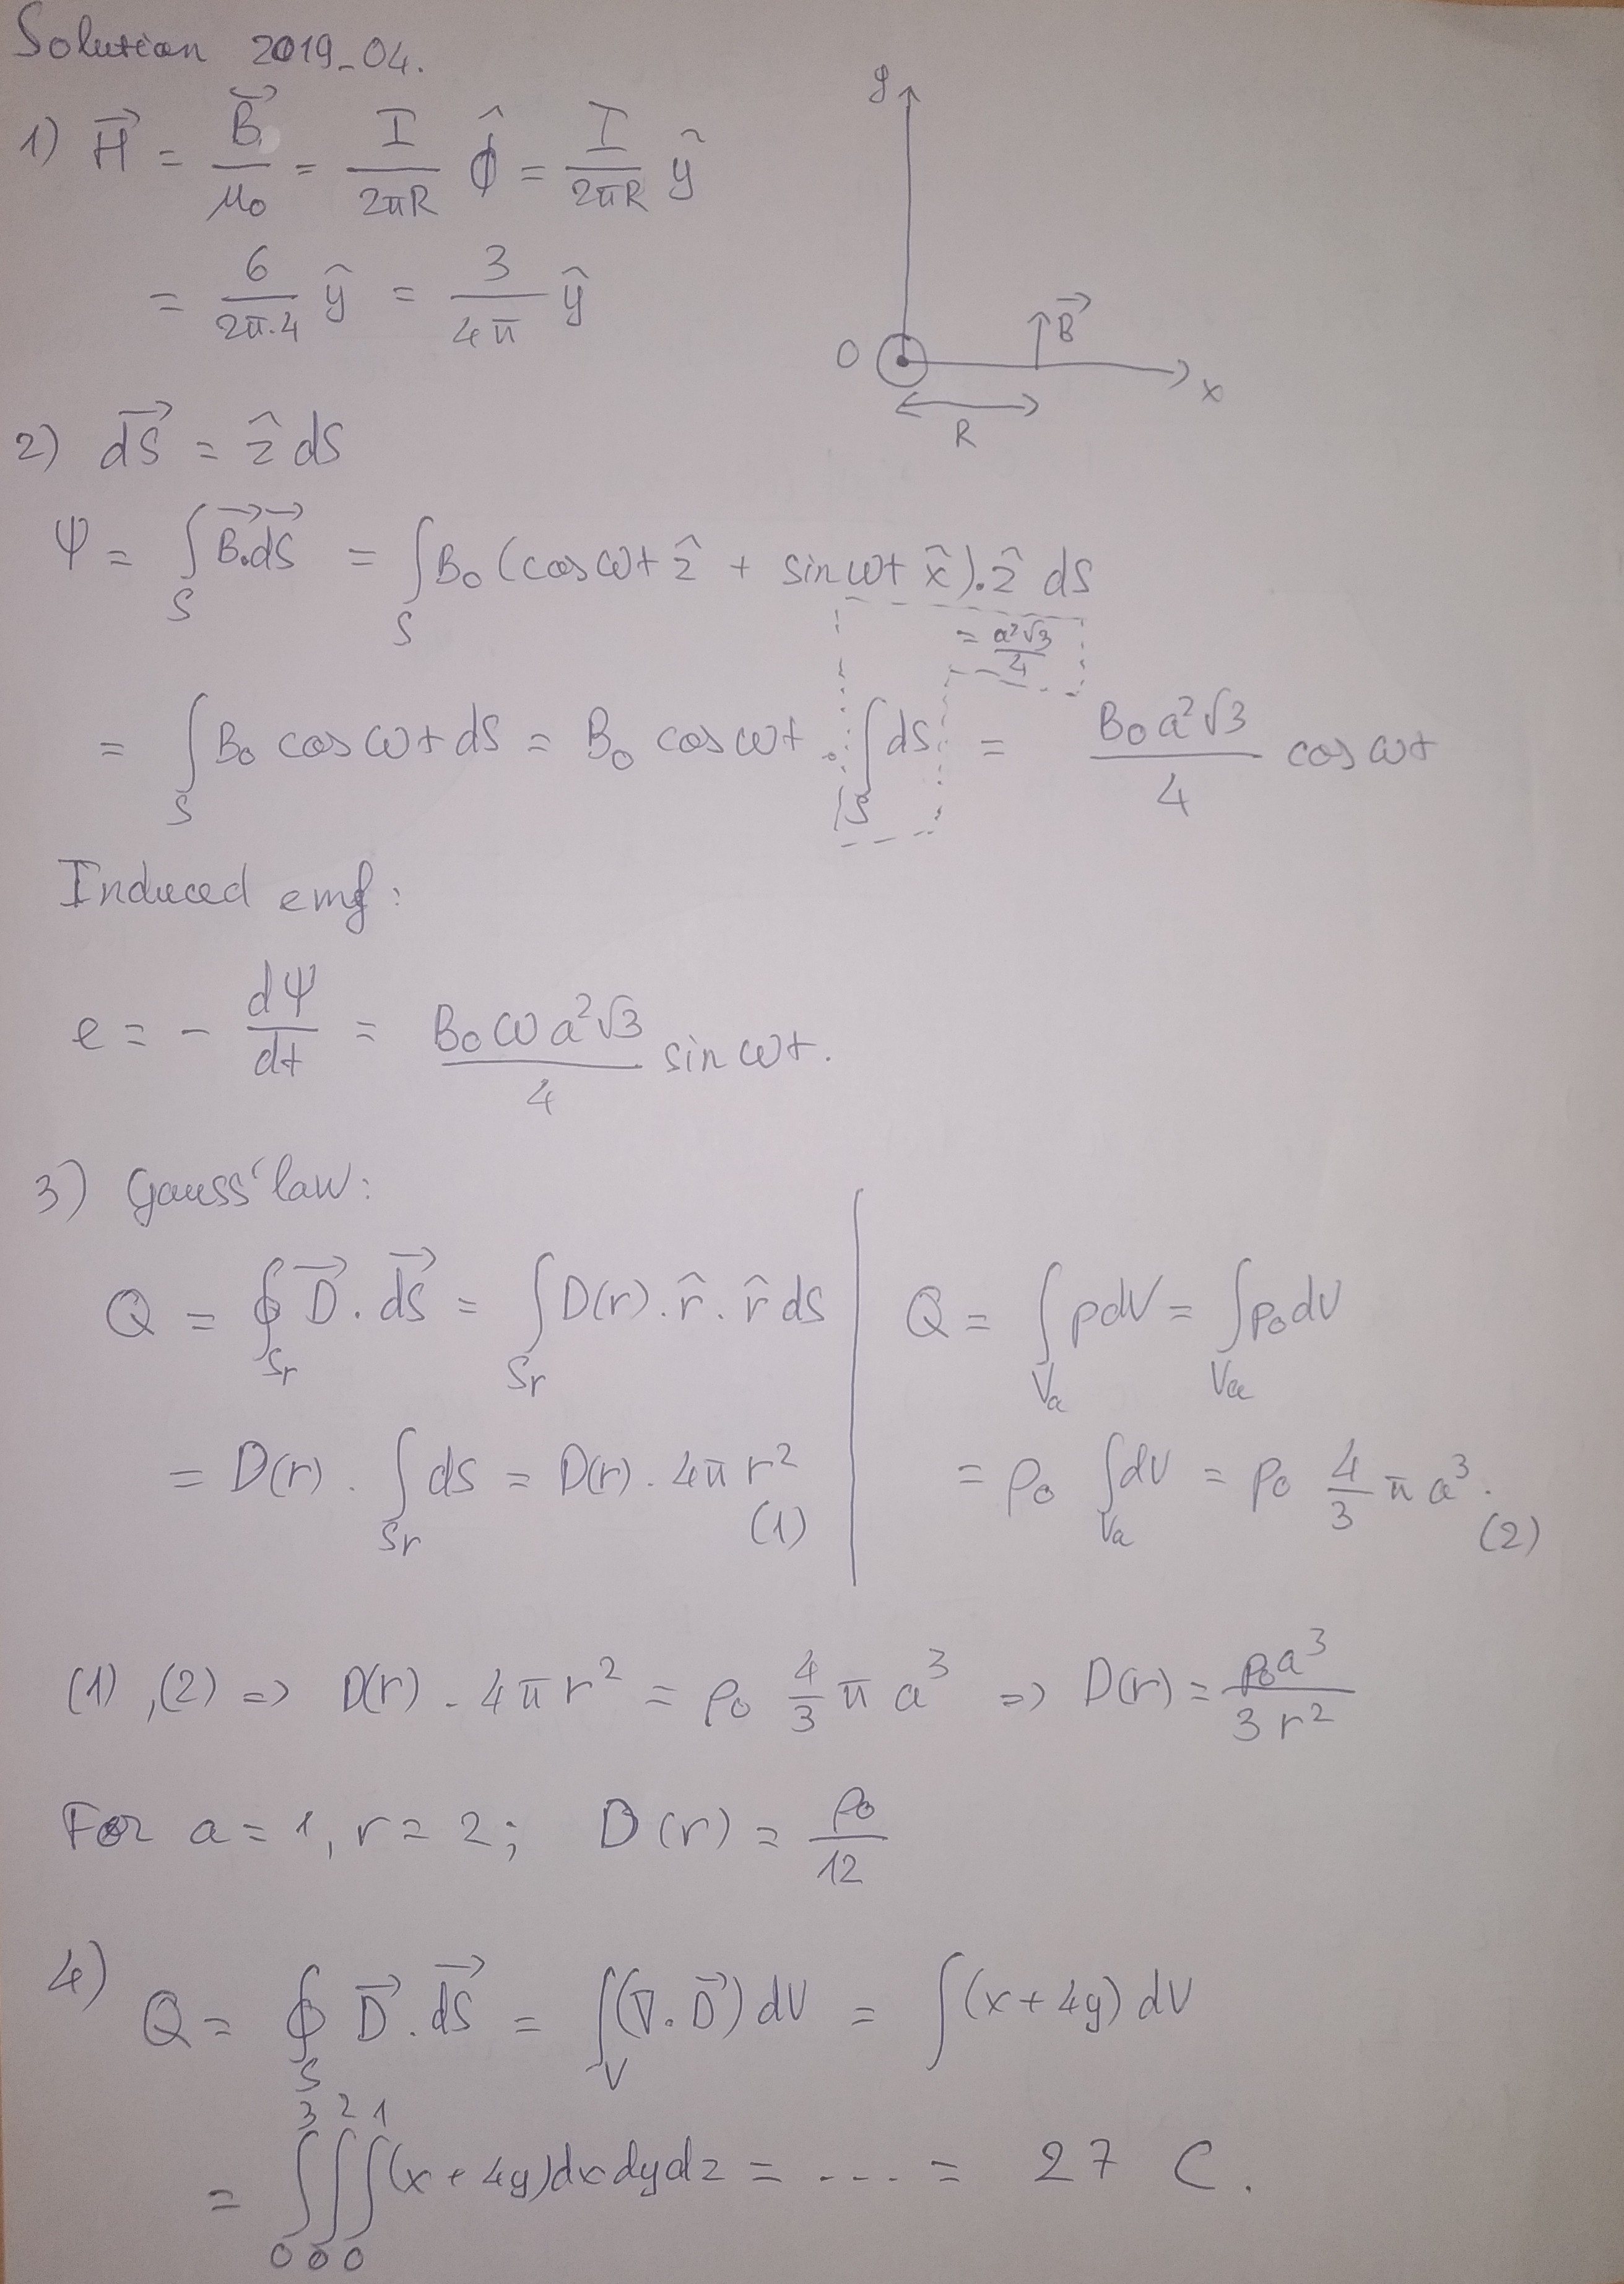 Solution 2019_04.
1) H⃗ = B⃗/μ₀ = I/(2πR) ϕ̂ = I/(2πR) ŷ
= 6/(2π.4) ŷ = 3/(4π) ŷ
y
O
B⃗
x
R
2) dS⃗ = ẑ dS
Ψ = ∫_S B⃗.dS⃗ = ∫_S B₀ (cos ωt ẑ + sin ωt x̂).ẑ dS
= a²√3/4
= ∫_S B₀ cos ωt dS = B₀ cos ωt . ∫_S dS = B₀a²√3/4 cos ωt
Induced emf:
e = - dΨ/dt = B₀ωa²√3/4 sin ωt.
3) Gauss' law:
Q = ∮_Sr D⃗.dS⃗ = ∫_Sr D(r).r̂.r̂ dS
= D(r) . ∫_Sr dS = D(r). 4πr² (1)
Q = ∫_Va ρdV = ∫_Va ρ₀dV
= ρ₀ ∫_Va dV = ρ₀ 4/3 πa³. (2)
(1),(2) => D(r) . 4πr² = ρ₀ 4/3 πa³ => D(r) = ρ₀a³/(3r²)
For a = 1, r = 2; D(r) = ρ₀/12
4) Q = ∮_S D⃗.dS⃗ = ∫_V (∇.D⃗) dV = ∫(x + 4y) dV
= ∫₀³∫₀²∫₀¹(x + 4y)dxdydz = .... = 27 C.